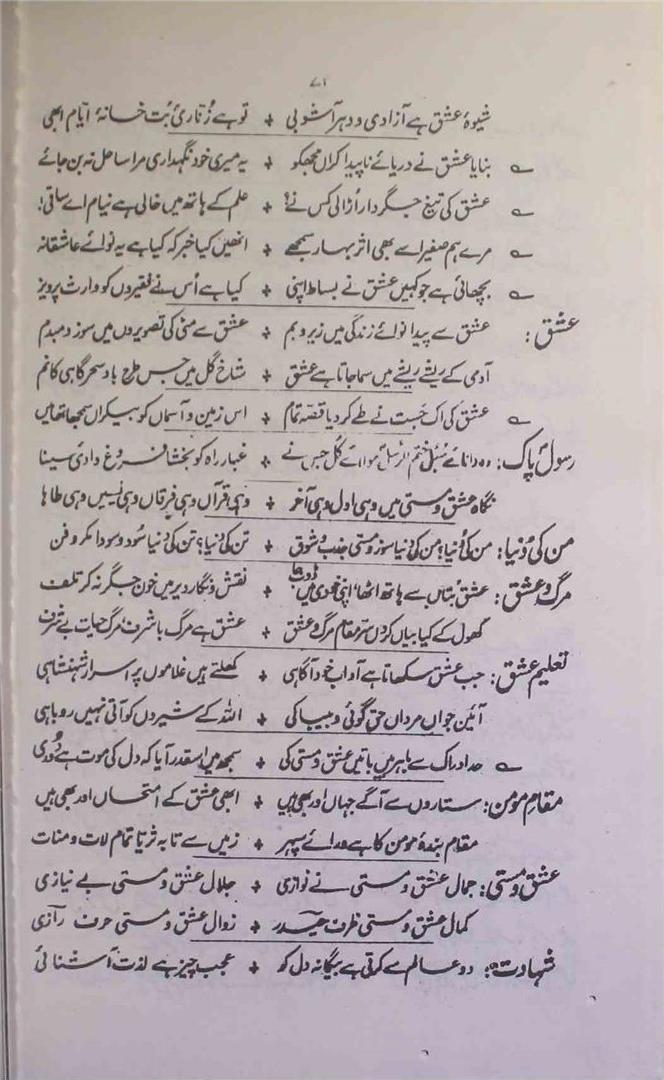 ۷۱
شیوۂ عشق ہے آزادی و دہر آشوبی + تو ہے زُنّاریِٔ بُت خانۂ ایّام ابھی
؎ بنایا عشق نے دریائے ناپیدا کراں مجھکو + یہ میری خود نگہداری مرا ساحل نہ بن جائے
؎ عشق کی تیغِ جگردار اُڑا لی کس نے؟ + علم کے ہاتھ میں خالی ہے نیام اے ساقی!
؎ مرے ہم صفیر اسے بھی اثرِ بہار سمجھے + انھیں کیا خبر کہ کیا ہے یہ نوائے عاشقانہ
؎ بچھائی ہے جو کہیں عشق نے بساط اپنی + کیا ہے اُس نے فقیروں کو وارثِ پرویز
عشق: عشق سے پیدا نوائے زندگی میں زیر و بم + عشق سے مٹی کی تصویروں میں سوزِ دمبدم
آدمی کے ریشے ریشے میں سما جاتا ہے عشق + شاخِ گل میں جس طرح بادِ سحر گاہی کا نم
؎ عشق کی اک جَست نے طے کر دیا قصّہ تمام + اس زمین و آسماں کو بیکراں سمجھا تھا میں
رسولِ پاک: وہ دانائے سُبل ختم الرسل مولائے کُل جس نے + غبارِ راہ کو بخشا فروغِ وادیٔ سینا
نگاہِ عشق و مستی میں وہی اول وہی آخر + وہی قرآں وہی فرقاں وہی یٰسیں وہی طاہا
من کی دُنیا: من کی دُنیا؟ من کی دنیا سوز و مستی جذب و شوق + تن کی دُنیا؟ تن کی دنیا سُود و سودا مکر و فن
مرگ و عشق: عشقِ بُتاں سے ہاتھ اٹھا، اپنی خودی میں ڈوب جا + نقش و نگارِ دیر میں خونِ جگر نہ کر تلف
کھول کے کیا بیاں کروں سرِّ مقامِ مرگ و عشق + عشق ہے مرگِ باشرف، مرگ حیاتِ بے شرف
تعلیمِ عشق: جب عشق سکھاتا ہے آدابِ خود آگاہی + کھلتے ہیں غلاموں پر اسرارِ شہنشاہی
آئینِ جواں مرداں حق گوئی و بیباکی + اللہ کے شیروں کو آتی نہیں روباہی
؎ حدِ ادراک سے باہر ہیں باتیں عشق و مستی کی + سمجھ میں اسقدر آیا کہ دل کی موت ہے دُوری
مقامِ مومن: ستاروں سے آگے جہاں اور بھی ہیں + ابھی عشق کے امتحاں اور بھی ہیں
مقامِ بندۂ مومن کا ہے ورائے سپہر + زمیں سے تا بہ ثریا تمام لات و منات
عشق و مستی: جمالِ عشق و مستی نے نوازی + جلالِ عشق و مستی بے نیازی
کمالِ عشق و مستی ظرفِ حیدرؓ + زوالِ عشق و مستی حرفِ رازی
شہادت: دو عالم سے کرتی ہے بیگانہ دل کو + عجب چیز ہے لذتِ آشنائی